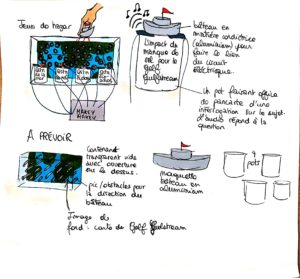 Jeux de hasar
bâteau en
matière conductrice
(aluminium) pour
faire le lien
du circuit
électrique.
L'impact du
manque de
sel pour le
Golf
Gulfstream
Un pot faisant office
de pancarte d'une
interrogation sur le sujet.
L'audio répond à la
question
MAKEY
MAKEY
A PREVOIR
Contenant
transparent vide
avec ouverture
ou le dessus.
pic/obstacles pour
la direction du
bâteau
Image de
fond: carte du Golf Gulfstream
maquette
bâteau en
aluminium
4
pots